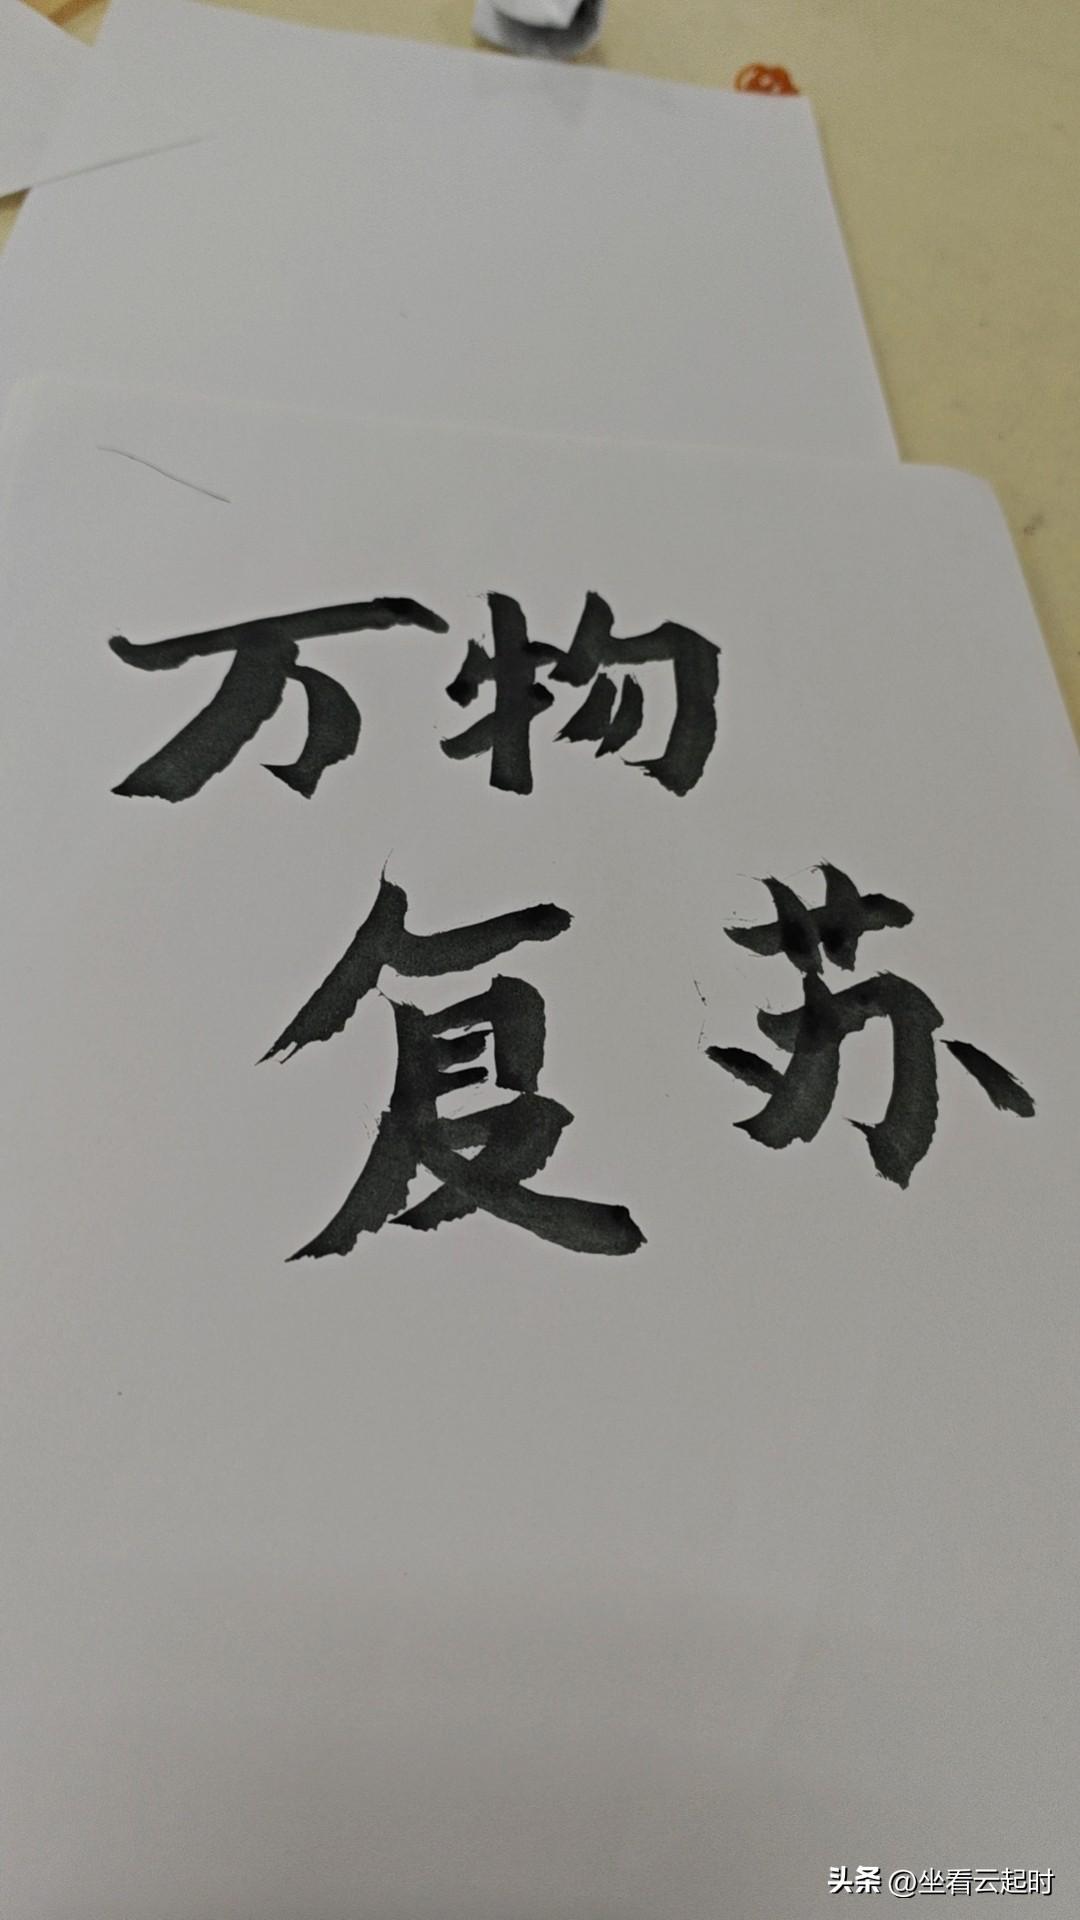 万物
复苏
头条 @坐看云起时